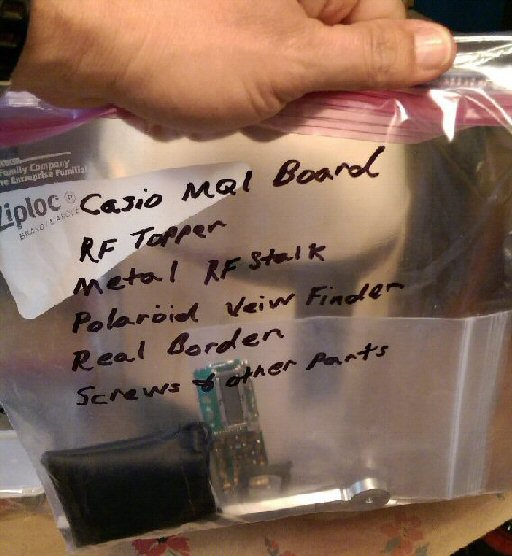 Family Company
Ziploc®
Casio MQ1 Board
RF Topper
Metal RF Stalk
Polaroid Veiw Finder
Real Borden
Screws & other parts